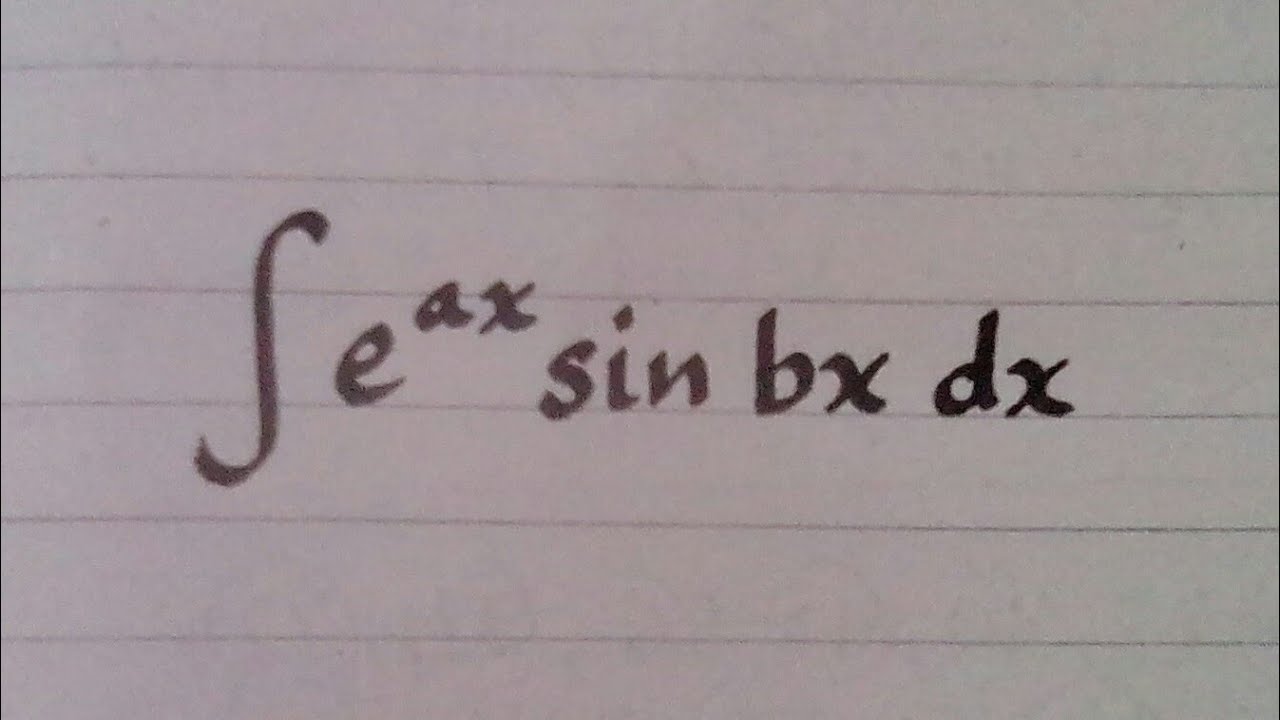 ∫ e^{ax} sin bx dx